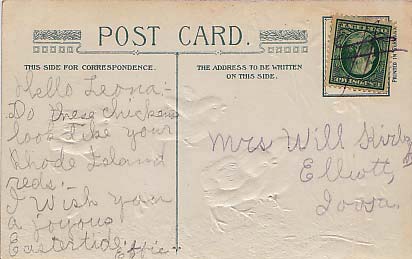 POST CARD.
THIS SIDE FOR CORRESPONDENCE.
THE ADDRESS TO BE WRITTEN
ON THIS SIDE.
Hello Leona:-
Do these chickens
look like your
Rhode Island
reds.-
I Wish you
a joyous
Eastertide. Effie-
Mrs Will
Elliott,
Iowa.
PRINTED IN